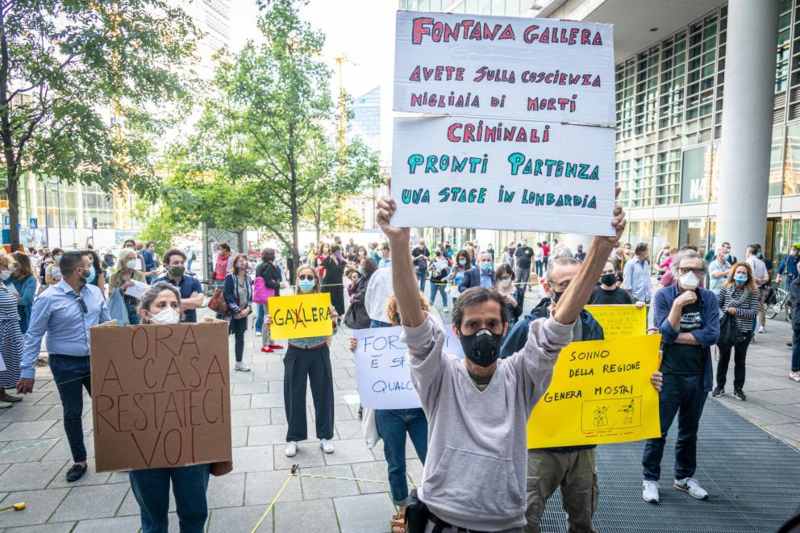 FONTANA GALLERA
AVETE SULLA COSCIENZA
MIGLIAIA DI MORTI
CRIMINALI
PRONTI PARTENZA
UNA STAGE IN LOMBARDIA
ORA
A CASA
RESTATECI
VOI
GALLERA
FOR
È S
QUALC
SONNO
DELLA REGIONE
GENERA MOSTRI